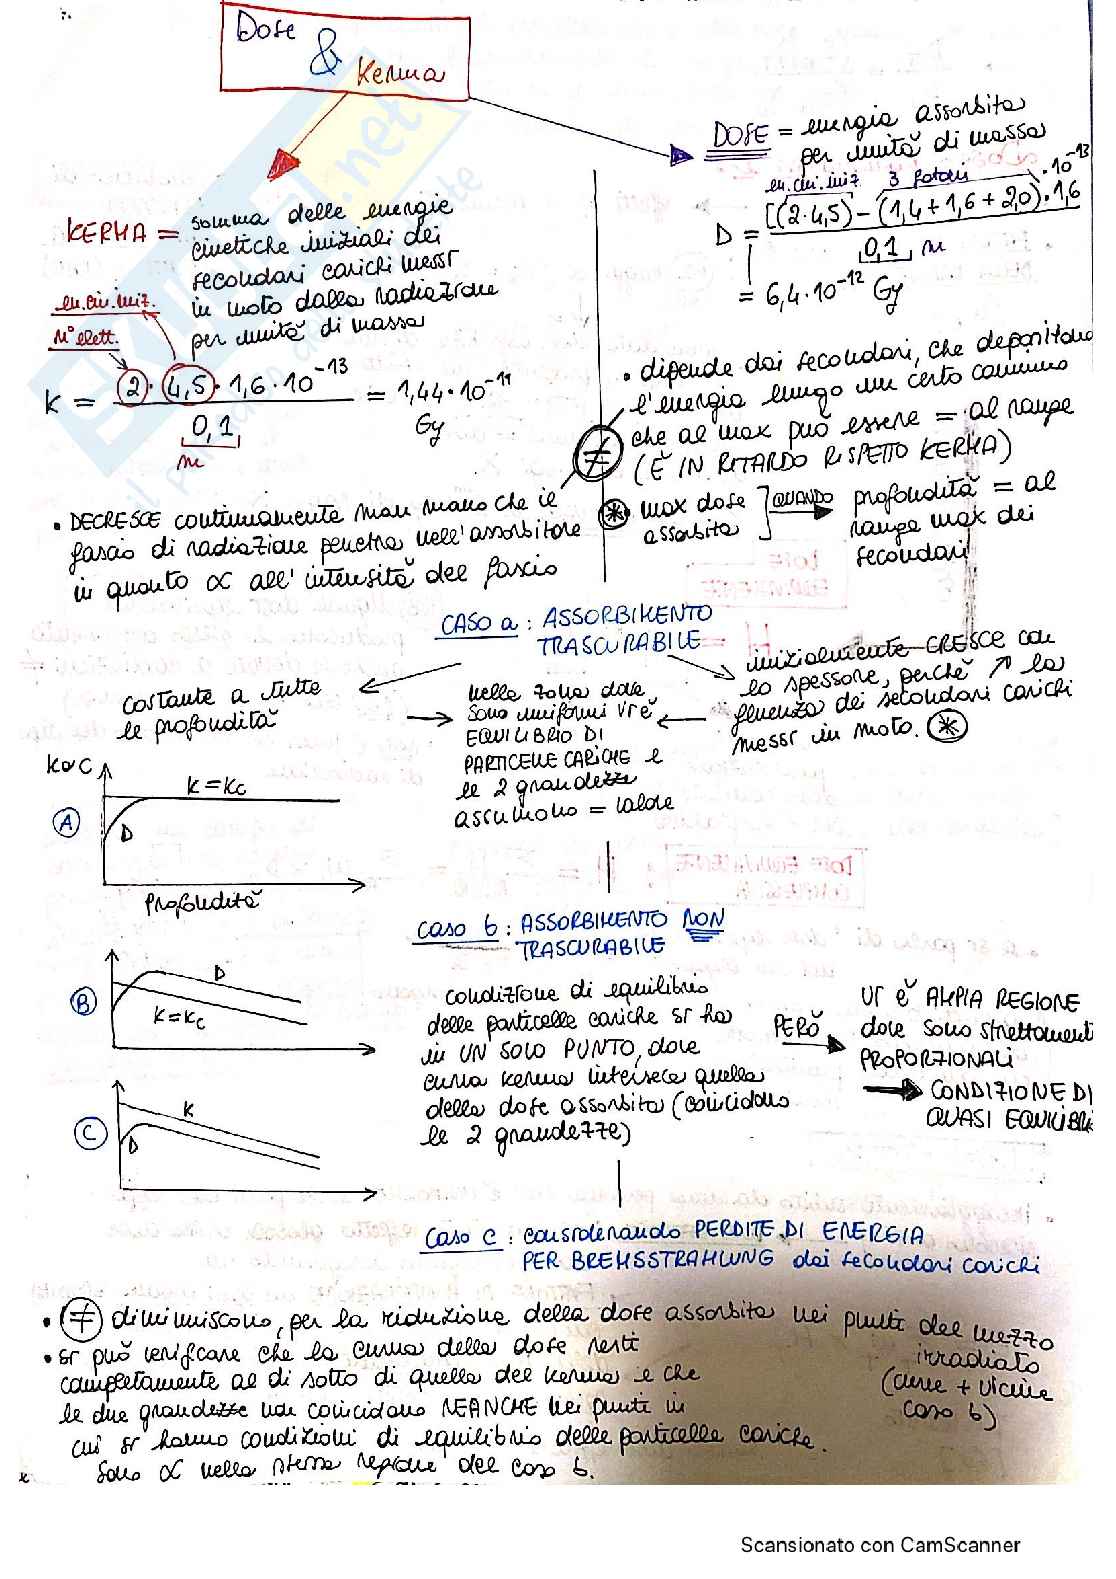 Dose
&
Kerma
DOSE = energia assorbita
per unità di massa
en.cin.iniz 3 fotoni
D = [(2·4,5) - (1,4+1,6+2,0)·1,6·10⁻¹³
0,1 m
= 6,4·10⁻¹² Gy
KERMA = somma delle energie
cinetiche iniziali dei
secondari carichi messi
in moto dalla radiazione
per unità di massa
en.cin.iniz.
n° elett.
K = 2·4,5·1,6·10⁻¹³ = 1,44·10⁻¹¹
0,1 Gy
m
• dipende dai secondari, che depositano
l'energia lungo un certo cammino
che al max può essere = al range
(È IN RITARDO RISPETTO KERMA)
≠
* max dose
assorbita
QUANDO
profondità = al
range max dei
secondari
• DECRESCE continuamente man mano che il
fascio di radiazione penetra nell'assorbitore
in quanto ∝ all'intensità del fascio
CASO a : ASSORBIMENTO
TRASCURABILE
costante a tutte
le profondità
nelle zona dove
sono uniformi vi è
EQUILIBRIO DI
PARTICELLE CARICHE e
le 2 grandezze
assumono = valore
inizialmente CRESCE con
lo spessore, perchè ↗ la
fluenza dei secondari carichi
messi in moto. *
K o C
K = Kc
A
D
Profondità
CASO b : ASSORBIMENTO NON
TRASCURABILE
B
D
K = Kc
condizione di equilibrio
delle particelle cariche si ha
in UN SOLO PUNTO, dove
curva kerma interseca quella
della dose assorbita (coincidono
le 2 grandezze)
PERÒ
VI È AMPIA REGIONE
dove sono strettamenti
PROPORZIONALI
CONDIZIONE DI
QUASI EQUILIBRI
C
K
D
CASO c : considerando PERDITE DI ENERGIA
PER BREMSSTRAHLUNG dei secondari carichi
• ≠ diminuiscono, per la riduzione della dose assorbita nei punti del mezzo
irradiato
(curve + vicine
caso b)
• si può verificare che la curva della dose resti
completamente al di sotto di quella del kerma e che
le due grandezze non coincidano NEANCHE nei punti in
cui si hanno condizioni di equilibrio delle particelle cariche.
Sono ∝ nella stessa regione del caso b.
Scansionato con CamScanner